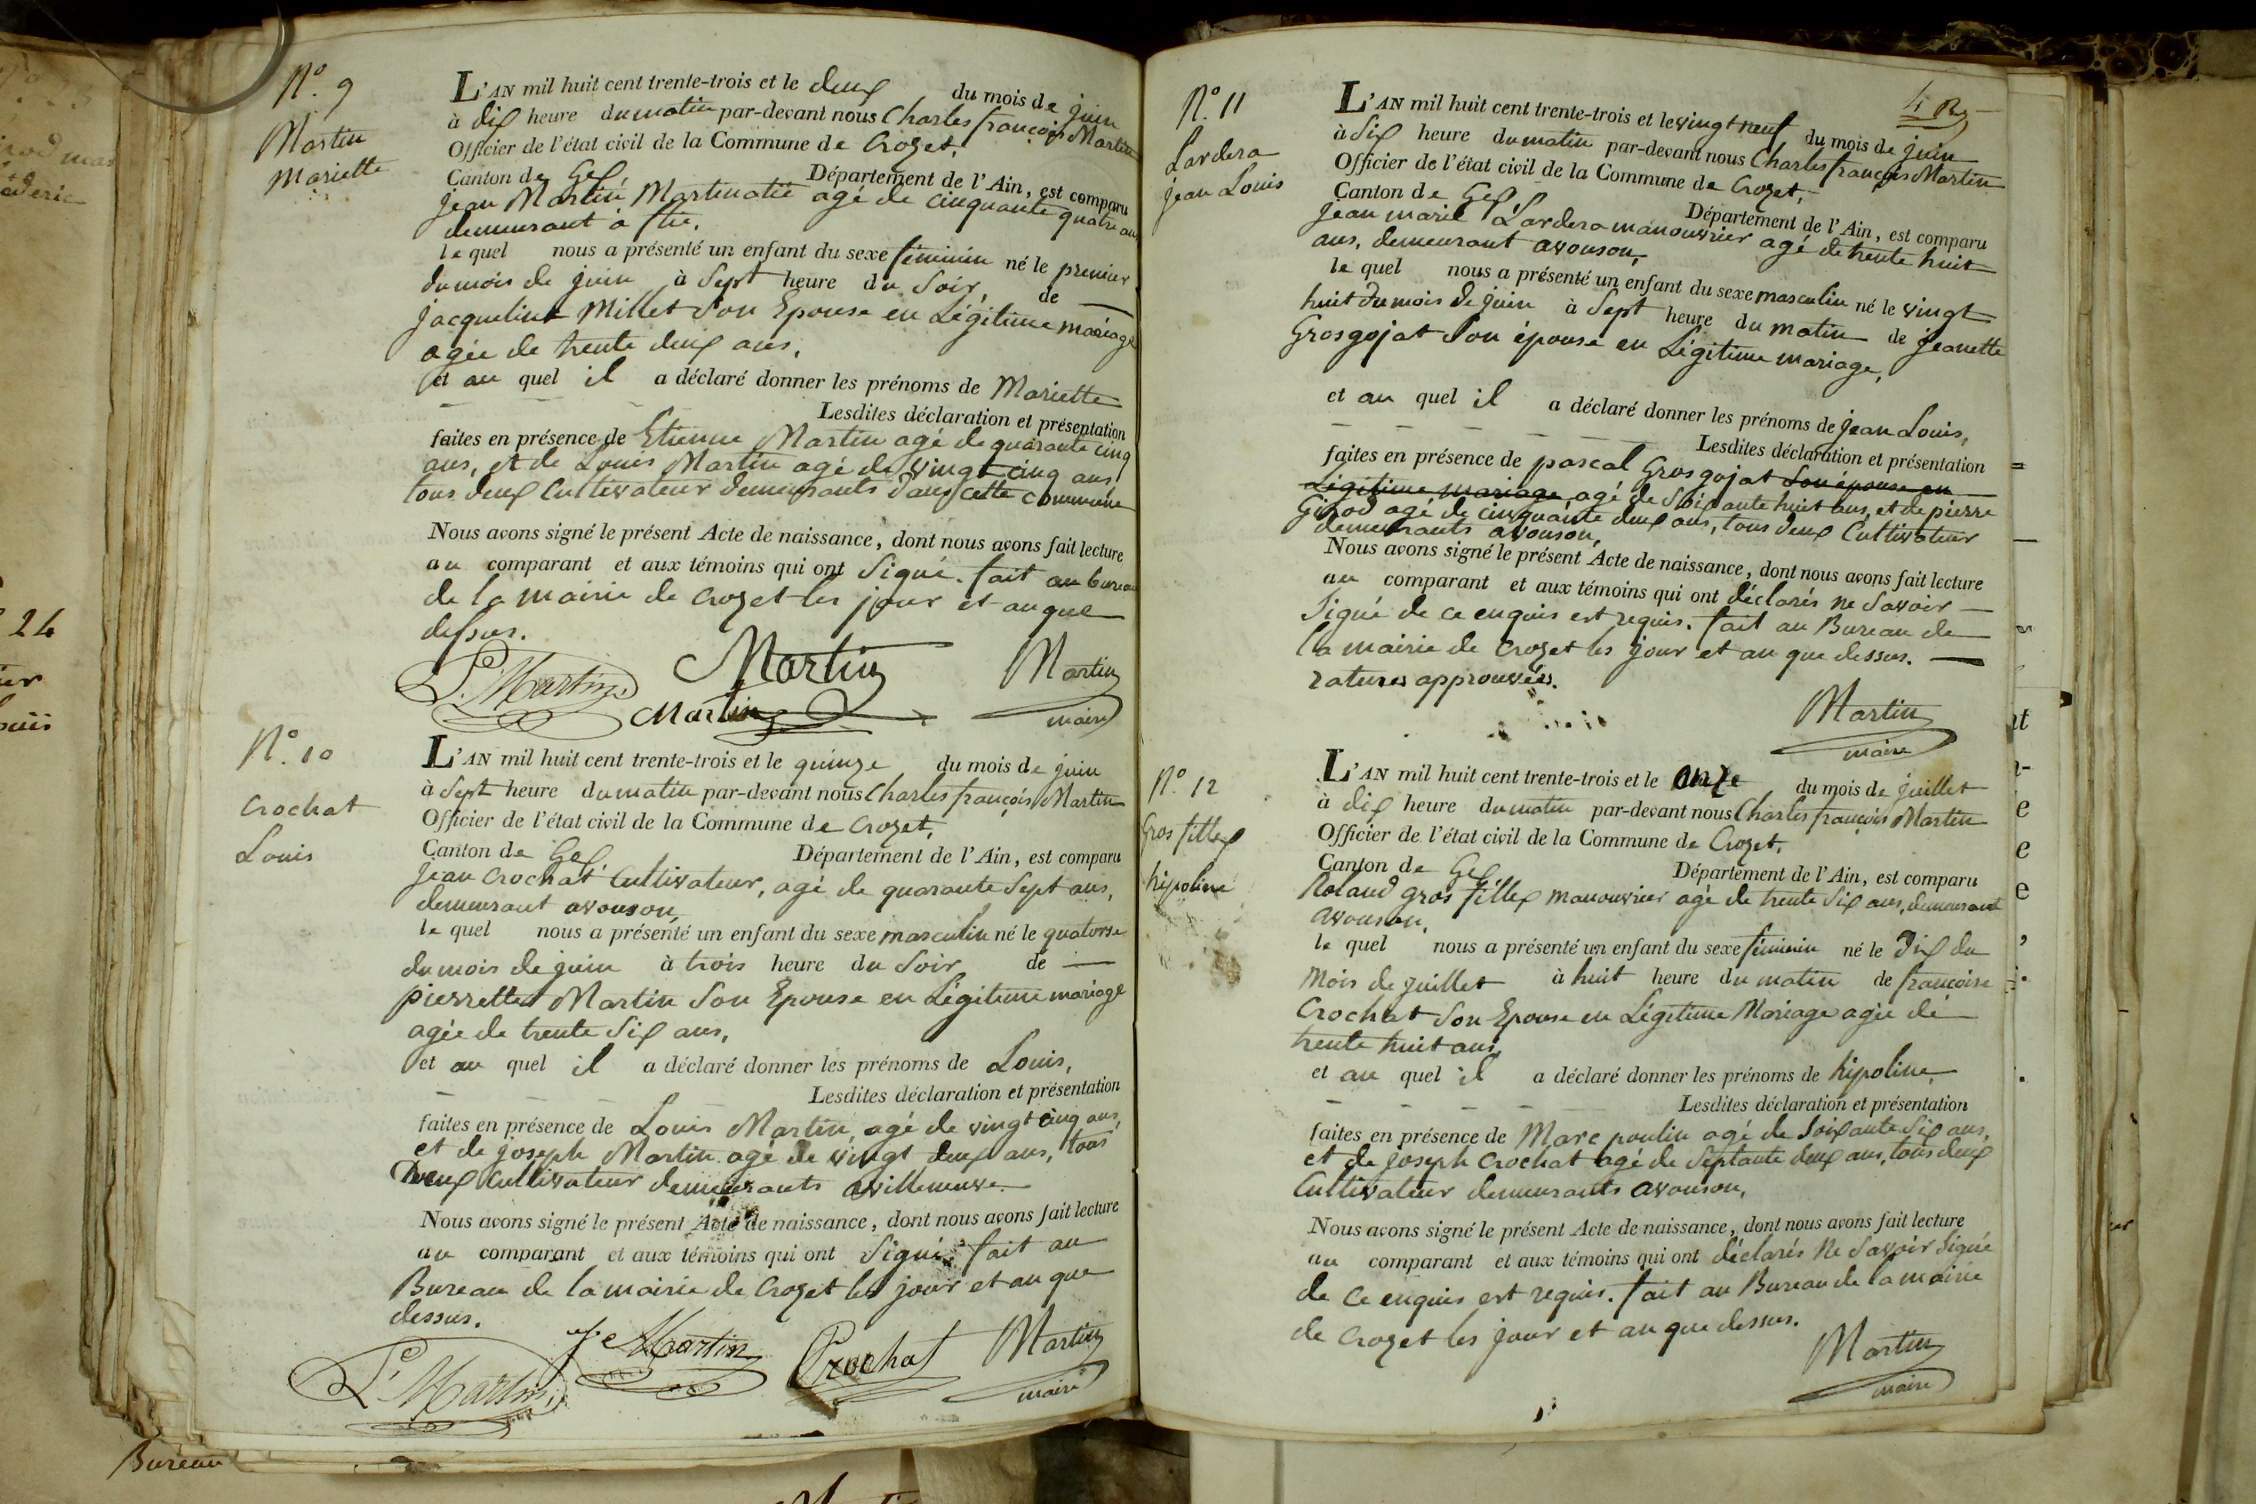 N.° 9
Martin
Mariette
L'AN mil huit cent trente-trois et le deux du mois de juin
à dix heure du matin par-devant nous Charles françois Martin
Officier de l'état civil de la Commune de Crozet,
Canton de Gex, Département de l'Ain, est comparu
jean Martin Martinatié agé de cinquante quatre ans
demeurant à
le quel nous a présenté un enfant du sexe féminin né le premier
du mois de juin à Sept heure du Soir, de
jacqueline Millet Son Epouse en Légitime mariage
agée de trente deux ans,
et au quel il a déclaré donner les prénoms de Mariette
Lesdites déclaration et présentation
faites en présence de Etienne Martin agé de quarante cinq
ans, et de Louis Martin agé de vingt cinq ans
tous deux Cultivateur demeurants dans cette commune
Nous avons signé le présent Acte de naissance, dont nous avons fait lecture
au comparant et aux témoins qui ont Signé. fait au bureau
de la mairie de Crozet les jour et an que
dessus.
L. Martin Martin Martin
Martin maire
N.° 10
Crochat
Louis
L'AN mil huit cent trente-trois et le quinze du mois de juin
à Sept heure du matin par-devant nous Charles françois Martin
Officier de l'état civil de la Commune de Crozet,
Canton de Gex, Département de l'Ain, est comparu
jean Crochat Cultivateur, agé de quarante Sept ans,
demeurant avouson,
le quel nous a présenté un enfant du sexe masculin né le quatorse
du mois de juin à trois heure du Soir de
pierrette Martin Son Epouse en Légitime mariage
agée de trente Six ans,
et au quel il a déclaré donner les prénoms de Louis,
Lesdites déclaration et présentation
faites en présence de Louis Martin, agé de vingt cinq ans,
et de joseph Martin agé de vingt deux ans, tous
Deux Cultivateur demeurants avilleneuve
Nous avons signé le présent Acte de naissance, dont nous avons fait lecture
au comparant et aux témoins qui ont Signé. fait au
Bureau de la mairie de Crozet les jour et an que
dessus.
L. Martin Je Martin Crochat Martin
maire
N.° 11
Lardera
jean Louis
L'AN mil huit cent trente-trois et le vingt neuf du mois de juin
à Six heure du matin par-devant nous Charles françois Martin
Officier de l'état civil de la Commune de Crozet,
Canton de Gex, Département de l'Ain, est comparu
jean marie Lardera manouvrier agé de trente huit
ans, demeurant avouson,
le quel nous a présenté un enfant du sexe masculin né le vingt
huit du mois de juin à Sept heure du matin de jeanette
Grosgojat Son épouse en Légitime mariage,
et au quel il a déclaré donner les prénoms de jean Louis,
Lesdites déclaration et présentation
faites en présence de pascal Grosgojat Son épouse en
Légitime mariage, agé de Soixante huit ans, et de pierre
Girod agé de cinquante deux ans, tous deux Cultivateur
demeurants avouson,
Nous avons signé le présent Acte de naissance, dont nous avons fait lecture
au comparant et aux témoins qui ont déclarés ne Savoir
Signé de ce enquis est requis. fait au Bureau de
la mairie de Crozet les jour et an que dessus.
ratures approuvées.
Martin
maire
N.° 12
Gros fillex
hipoline
L'AN mil huit cent trente-trois et le onze du mois de juillet
à dix heure du matin par-devant nous Charles françois Martin
Officier de l'état civil de la Commune de Crozet,
Canton de Gex, Département de l'Ain, est comparu
Roland gros fillex manouvrier agé de trente Six ans, demeurant
avouson,
le quel nous a présenté un enfant du sexe féminin né le Dix du
Mois de juillet à huit heure du matin de françoise
Crochat Son Epouse en Légitime Mariage agée de
trente huit ans,
et au quel il a déclaré donner les prénoms de hipoline,
Lesdites déclaration et présentation
faites en présence de Marc poulin agé de Soixante Six ans,
et de joseph Crochat agé de Septante deux ans, tous deux
Cultivateur demeurants avouson,
Nous avons signé le présent Acte de naissance, dont nous avons fait lecture
au comparant et aux témoins qui ont déclarés Ne Savoir Signé
de Ce enquis est requis. fait au Bureau de la mairie
de Crozet les jour et an que dessus.
Martin
maire
24
Bureau